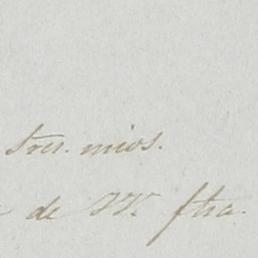 Stres. mios.
de VV. ftra.